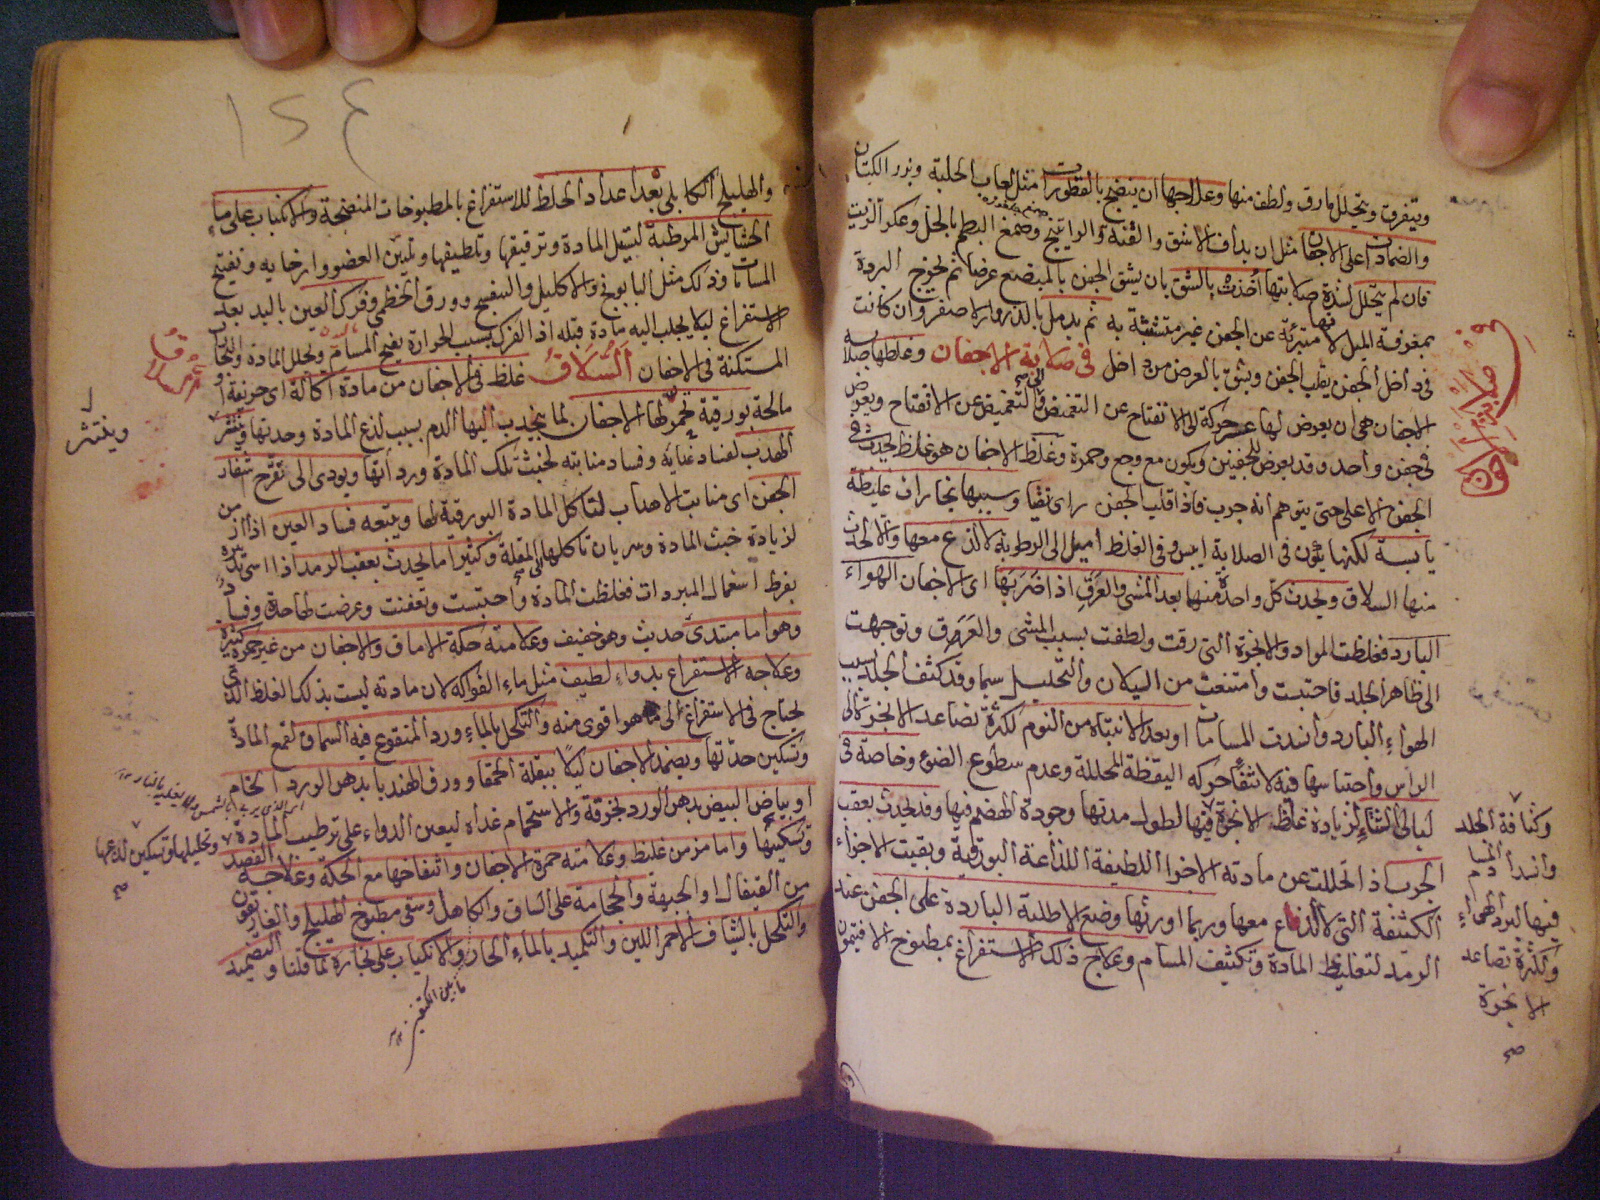 ويتفرق ويتحلل مارق ولطف منها وعلاجها ان ينضج بالقطورات مثل لعاب الحلبة وبزر الكتان
والضمادات على الاجفان مثل ان يداف الاشق والقنة والراتينج وصمغ البطم بالخل وعكر الزيت
فان لم يتحلل لشدة صلابتها اخذت بالشق بان يشق الجفن بالمبضع عرضا ثم تخرج البردة
بمغرفة الميل لانها متبرئة عن الجفن غير متشبثة به ثم يدمل بالذرور الاصفر وان كانت
في داخل الجفن يقلب الجفن ويشق بالعرض من داخل في صلابة الاجفان وغلظها صلابة
الاجفان هي ان يعرض لها عسر حركة الى الانفتاح عن التغميض والى التغميض عن الانفتاح ويعرض
في جفن واحد وقد يعرض للجفنين ويكون مع وجع وحمرة وغلظ الاجفان هو غلظ يحدث في
الجفن الاعلى حتى يتوهم انه جرب فاذا قلب الجفن راى نقيا وسببها بخارات غليظة
يابسة لكنها تكون في الصلابة ايبس وفي الغلظ اميل الى الرطوبة لا لذع معها والا لحدث
منها السلاق ويحدث كل واحدة منها بعد المشي والعرق اذا ضربها اى الاجفان الهواء
البارد فغلظت المواد والابخرة التى رقت ولطفت بسبب المشى والعرق وتوجهت
الى ظاهر الجلد فاحتبست وامتنعت من السيلان والتحليل سيما وقد كثف الجلد بسبب
الهواء البارد وانسدت المسامات او بعد الانتباه من النوم لكثرة تصاعد الابخرة الى
الراس واحتباسها فيه لانتفاء حركة اليقظة المحللة وعدم سطوع الضوء وخاصة في
ليالى الشتاء لزيادة غلظ الابخرة فيها لطول مدتها وجودة الهضم فيها وقد يحدث بعقب
الجرب اذ اتحللت عن مادته الاجزا اللطيفة اللذاعة البورقية وبقيت الاجزاء
الكثيفة التى لا لذع معها وربما اورثها وضع الاطلية الباردة على الجفن عند
الرمد لتغليظ المادة وتكثيف المسام وعلاج ذلك الاستفراغ بمطبوخ الافتيمون
في صلابة الاجفان
وكثافة الجلد
وانسداد المسام
فيها لبرد الهواء
ولكثرة تصاعد
الابخرة
صح
١٢٤
والهليلج الكابلى بعد اعداد الخلط للاستفراغ بالمطبوخات المنضجة والانكباب على ماء
الحشايش المرطبة لتسيل المادة وترقيقها وتلطيفها وتليين العضو وارخايه وتفتيح
المسامات وذلك مثل البابونج والاكليل والبنفسج وورق الخطمى وفرك العين باليد بعد
الاستفراغ ليلا يجلب اليه مادة قبله اذ الفرك بسبب الحرارة يفتح المسام ويحلل المادة
المستكنة في الاجفان السلاق غلظ في الاجفان من مادة اكالة اى حريفة او
مالحة بورقية تحمر لها الاجفان لما ينجذب اليها الدم بسبب لذع المادة وحدتها وينتثر
الهدب لفساد غذايه وفساد منابته لخبث تلك المادة ورداتها ويودى الى تقرح شفار
الجفن اى منابت الاهداب لتاكل المادة البورقية لها ويتبعه فساد العين اذا ازمن
لزيادة خبث المادة وسريان تاكلها الى المقلة وكثيرا ما يحدث بعقب الرمد اذا اسئ تدبيره
بفرط استعمال المبردات فغلظت المادة واحتبست وتعفنت وعرضت لها حدة وفساد
وهو اما مبتدئ حديث وهو خفيف وعلامته حكة الاماق والاجفان من غير حمرة كثيرة
وعلاجه الاستفراغ بدواء لطيف مثل ماء الفواكه لان مادته ليست بذلك الغلظ الذى
يحتاج في الاستفراغ الى ما هو اقوى منه والتكحل بالماء ورد المنقوع فيه السماق لقمع المادة
وتسكين حدتها ويضمد الاجفان ليلا ببقلة الحمقا وورق الهندبا بدهن الورد الخام
او بياض البيض بدهن الورد بخرقة والاستحمام غداه ليعين الدواء على ترطيب المادة
وتسكينها واما مزمن غليظ وعلامته حمرة الاجفان وانتفاخها مع الحكة وعلاجه الفصد
من القيفال او الجبهة والحجامة على الساق والكاهل وسقى مطبوخ الهليلج والغاريقون
والتكحل بالشياف الاحمر اللين والتكميد بالماء الحار والانكباب على بخاره لما قلنا والتضميد
السلاق
وينتثر
وتحليلها وتسكين لذعها
صح